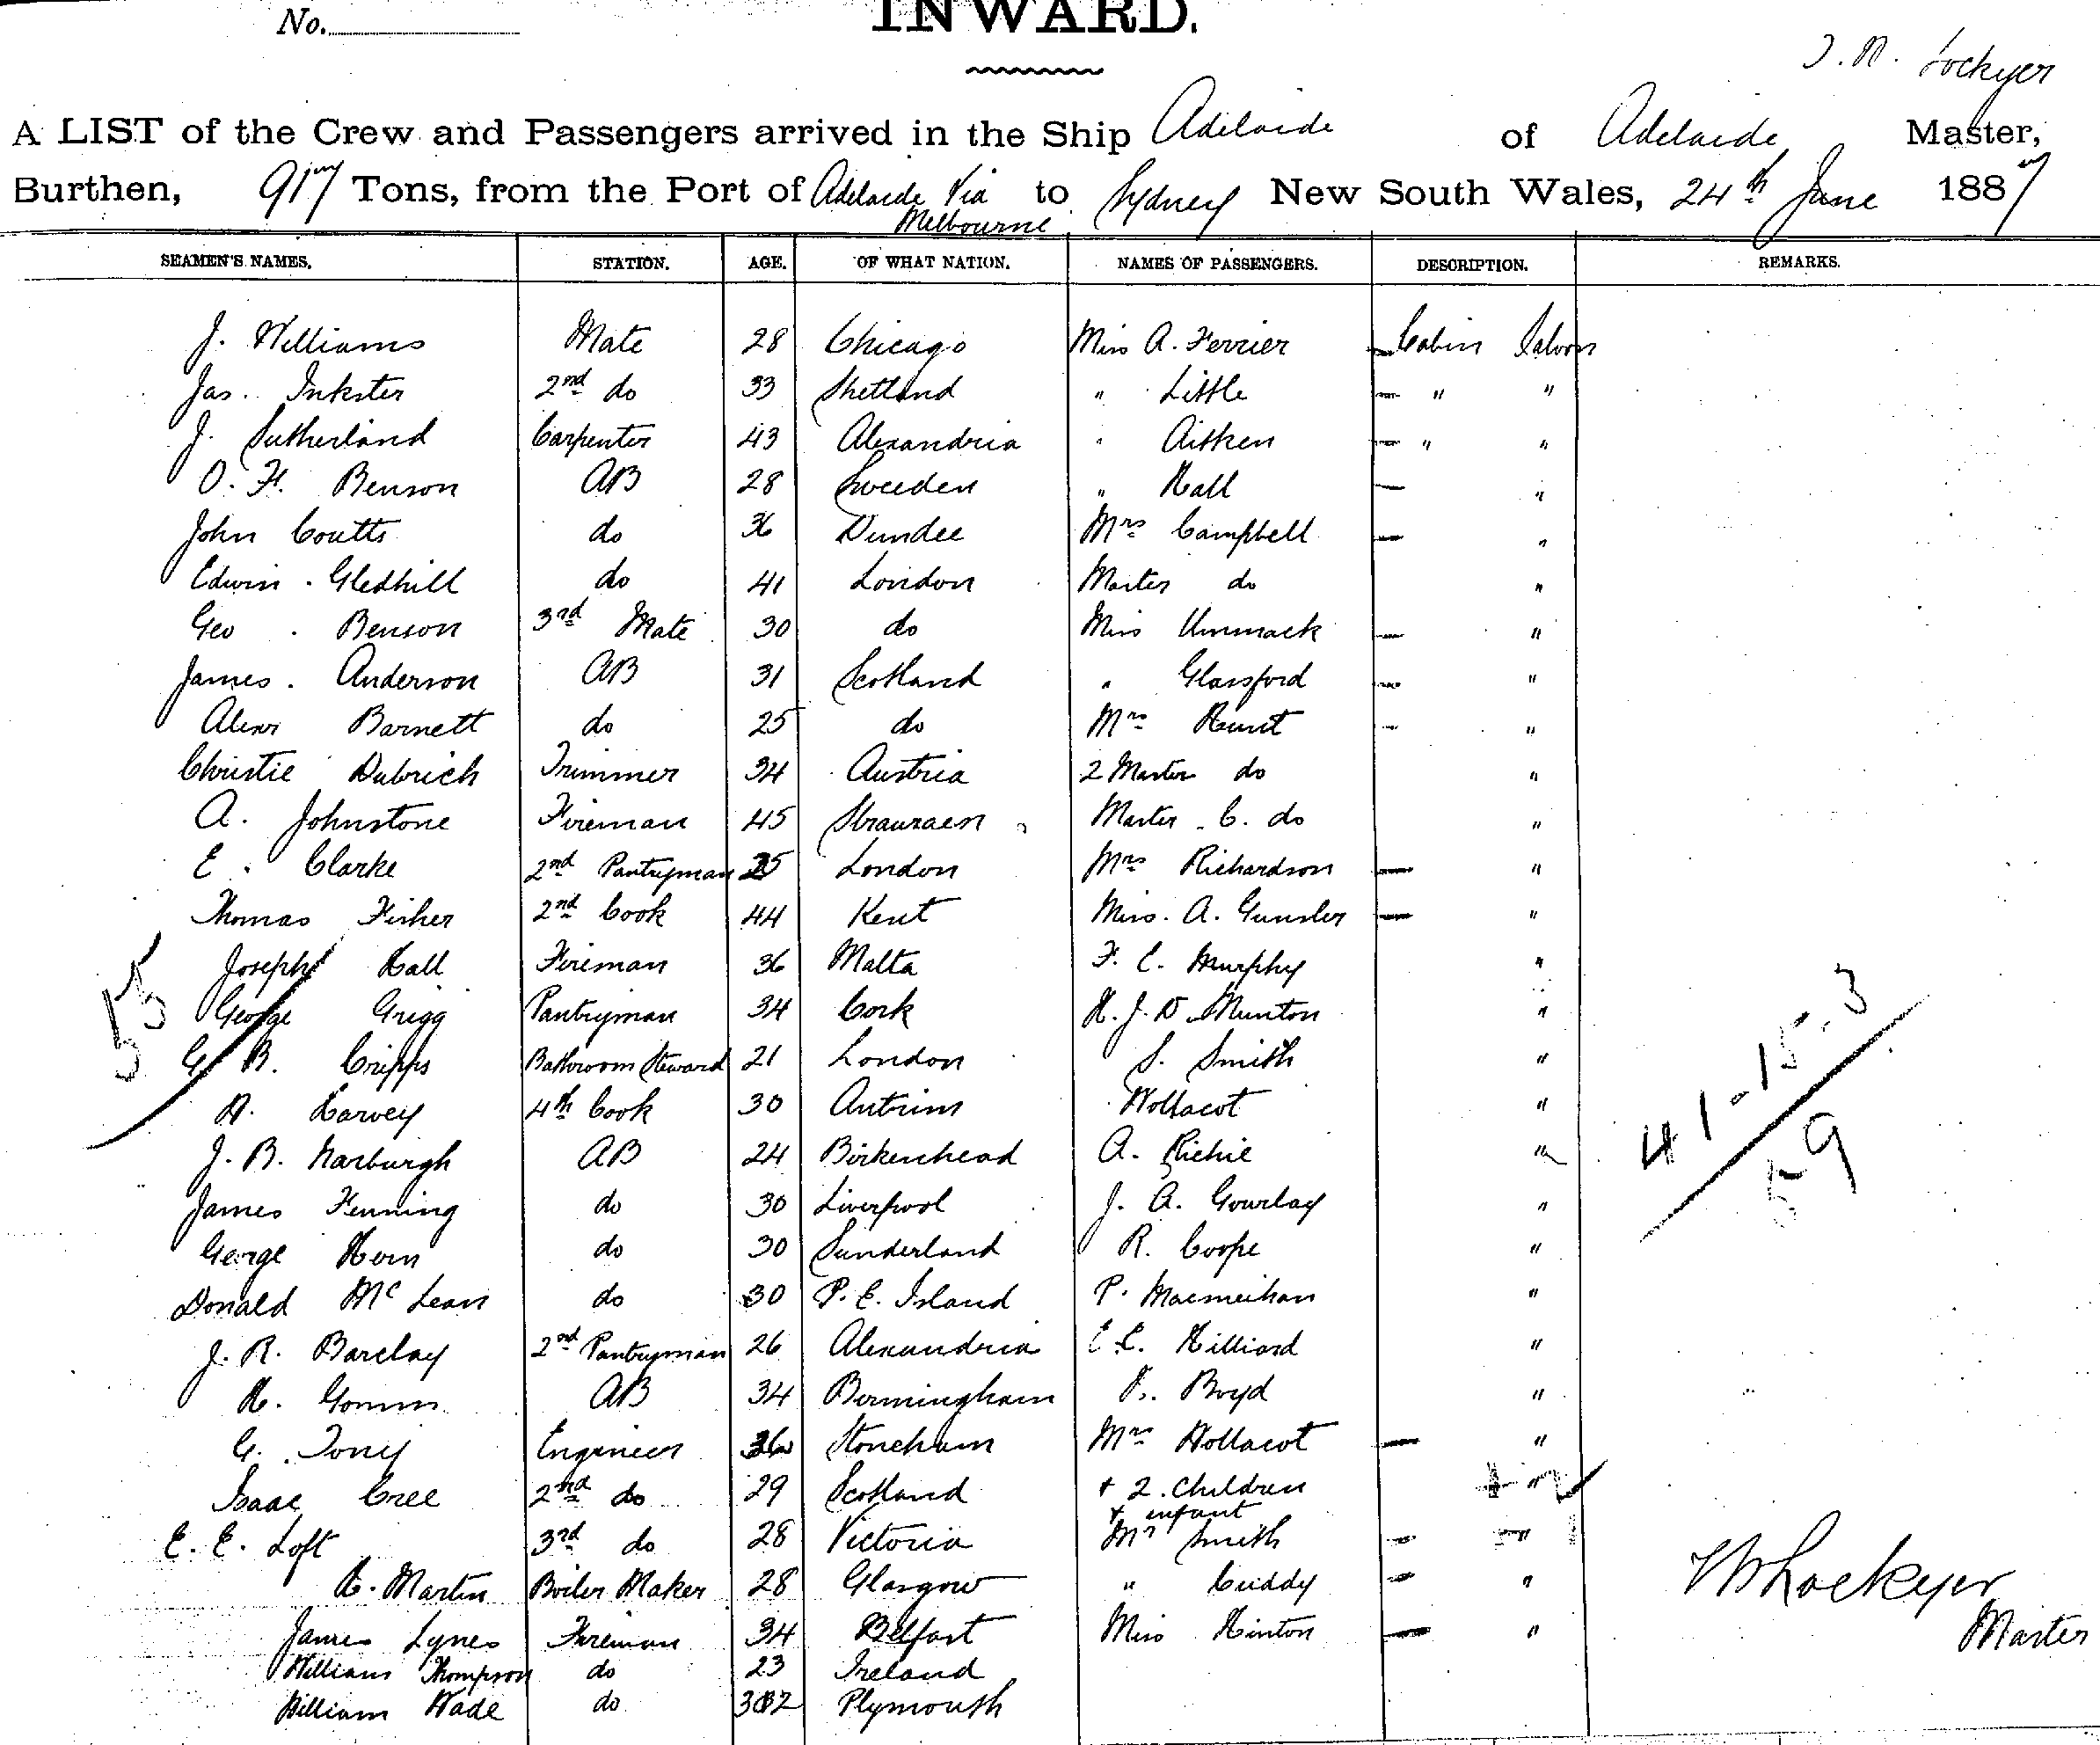 No.
INWARD.
Lockyer
A LIST of the Crew and Passengers arrived in the Ship Adelaide of Adelaide Master,
Burthen, 917 Tons, from the Port of Adelaide Via Melbourne to Sydney New South Wales, 24th June 1887
SEAMEN'S NAMES. STATION. AGE. OF WHAT NATION. NAMES OF PASSENGERS. DESCRIPTION. REMARKS.
J. Williams Mate 28 Chicago Miss A. Ferrier Cabin Saloon
Jas. Inkster 2nd do 33 Shetland " Little " "
J. Sutherland Carpenter 43 Alexandria " Aitken " "
O. F. Benson AB 28 Sweeden " Hall "
John Coutts do 36 Dundee Mrs Campbell "
Edwin Gledhill do 41 London Master do "
Geo Benson 3rd Mate 30 do Miss Ummack "
James Anderson AB 31 Scotland " Glassford "
Alexr Barnett do 25 do Mrs Hunt "
Christie Dubrich Trimmer 34 Austria 2 Master do "
A. Johnstone Fireman 45 Master C. do "
E. Clarke 2nd Pantryman 25 London Mrs Richardson "
Thomas Fisher 2nd Cook 44 Kent Miss. A. Gunsler "
Joseph Hall Fireman 36 Malta F. C. Murphy "
George Grigg Pantryman 34 Cork H. J. D. Munton "
G. B. Cripps Bathroom Steward 21 London S. Smith "
H. Harvey 4th Cook 30 Antrim Wollacot "
J. B. Narburgh AB 24 Birkenhead A. Richie "
James Fenning do 30 Liverpool J. A. Gourlay "
George Horn do 30 Sunderland R. Coope "
Donald McLean do 30 P. E. Island P. Macmeikan "
J. R. Barclay 2nd Pantryman 26 Alexandria E. L. Hilliard "
H. Gomm AB 34 Birmingham Boyd "
G. Tony Engineer 36 Stoneham Mrs Wollacot "
Isaac Cree 2nd do 29 Scotland + 2 Children
+ infant
E. E. Loft 3rd do 28 Victoria Mr Smith "
H. Martin Boiler Maker 28 Glasgow " Cuddy "
James Lynes Fireman 34 Belfast Miss Hinton "
William Thompson do 23 Ireland
William Wade do 32 Plymouth
55
41-15-3
59
Lockyer
Master